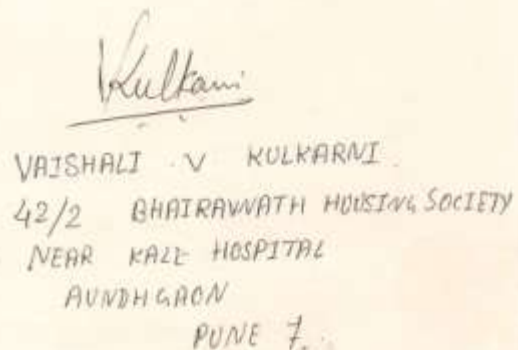 VKulkarni
VAISHALI . V KULKARNI.
42/2 BHAIRAVNATH HOUSING SOCIETY
NEAR KALE HOSPITAL
AUNDHGAON
PUNE 7.